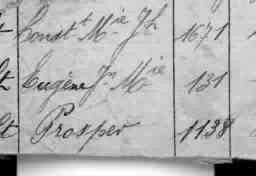 Const.t M.ie J.h 1671
Eugène J.n M.ie 131
Prosper 1138